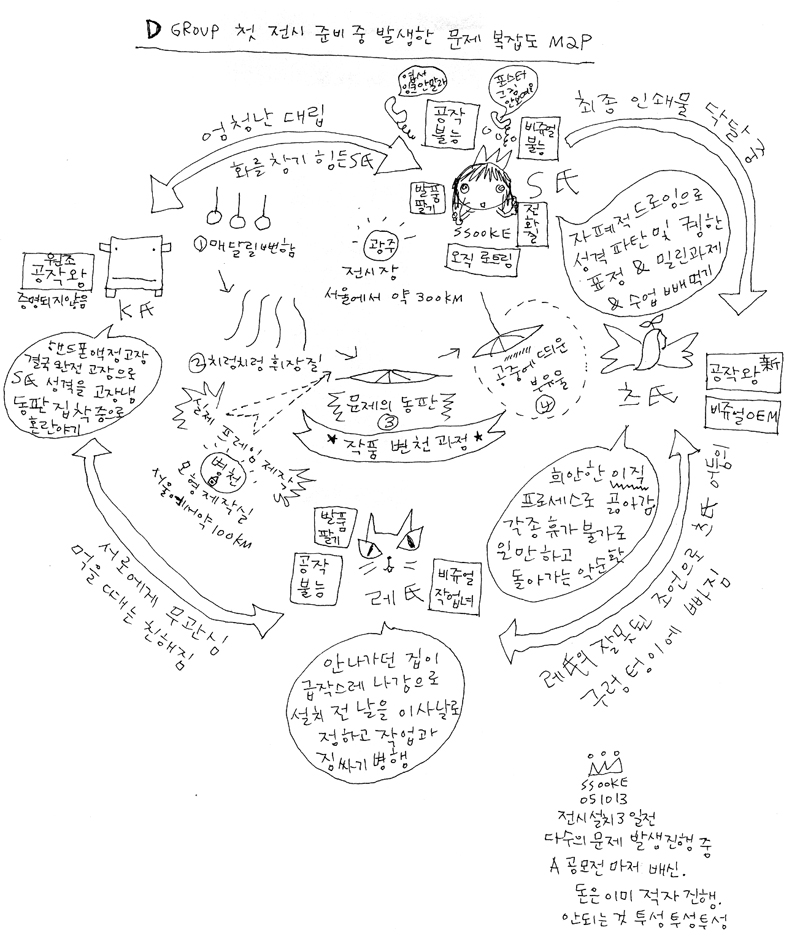 D GROUP 첫 전시 준비 중 발생한 문제 복잡도 M2P
엽서
포스터
그림
공작
불능
비쥬얼
불능
엄청난 대립
화를 참기 힘든 S氏
최종 인쇄물 닥달 중
발품
팔기
S氏
전화질
SSOOKE
오직 로트링
자폐적 드로잉으로
성격 파탄 및 퀭한
표정 & 밀린과제
& 수업 빼먹기
① 매달릴뻔함
광주
전시장
서울에서 약 300KM
원조
공작왕
증명되지않음
K氏
핸드폰액정고장
결국 완전 고장으로
S氏 성격을 고자냄
동판 집착증으로
혼란야기
② 치렁치렁 휘장질
문제의 동판
③
공중에 띄운
부유물
④
★작품 변천 과정★
실제 프레임 제작
병천
모형 제작실
서울에서 약 100KM
초氏
공작왕 新
비쥬얼OEM
희안한 이직
프로세스로 곪아감
각종 휴가 불가로
일만 하고
돌아가는 악순환
발품
팔기
공작
불능
비쥬얼
작업녀
레氏
서로에게 무관심
먹을 때는 친해짐
레氏의 잘못된 조언으로 초氏
구렁텅이에 빠짐
안나가던 집이
급작스레 나감으로
설치 전 날을 이사날로
정하고 작업과
짐싸기 병행
SSOOKE
051013
전시설치 3일전
다수의 문제 발생진행 중
A 공모전 마저 배신.
돈은 이미 적자 진행.
안되는 것 투성투성투성